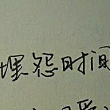 埋怨时间